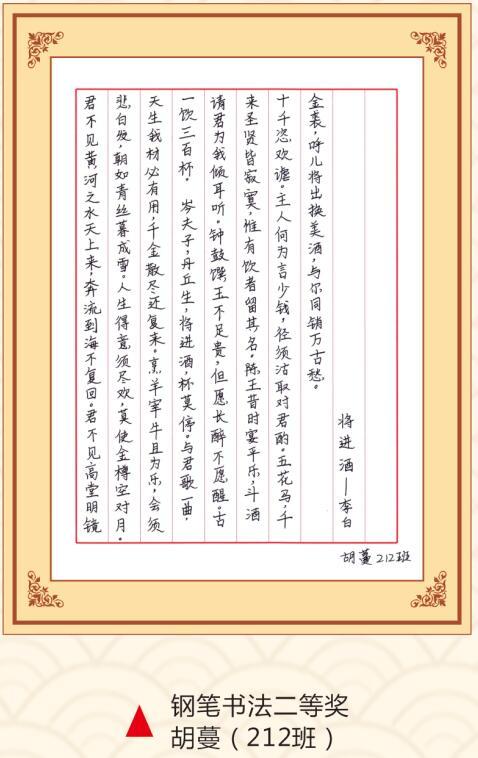 君不见黄河之水天上来，奔流到海不复回。君不见高堂明镜
悲白发，朝如青丝暮成雪。人生得意须尽欢，莫使金樽空对月。
天生我材必有用，千金散尽还复来。烹羊宰牛且为乐，会须
一饮三百杯。 岑夫子，丹丘生，将进酒，杯莫停。与君歌一曲，
请君为我倾耳听。钟鼓馔玉不足贵，但愿长醉不愿醒。古
来圣贤皆寂寞，惟有饮者留其名。陈王昔时宴平乐，斗酒
十千恣欢谑。主人何为言少钱，径须沽取对君酌。五花马，千
金裘，呼儿将出换美酒，与尔同销万古愁。
将进酒——李白
胡蔓 212班
钢笔书法二等奖
胡蔓（212班）